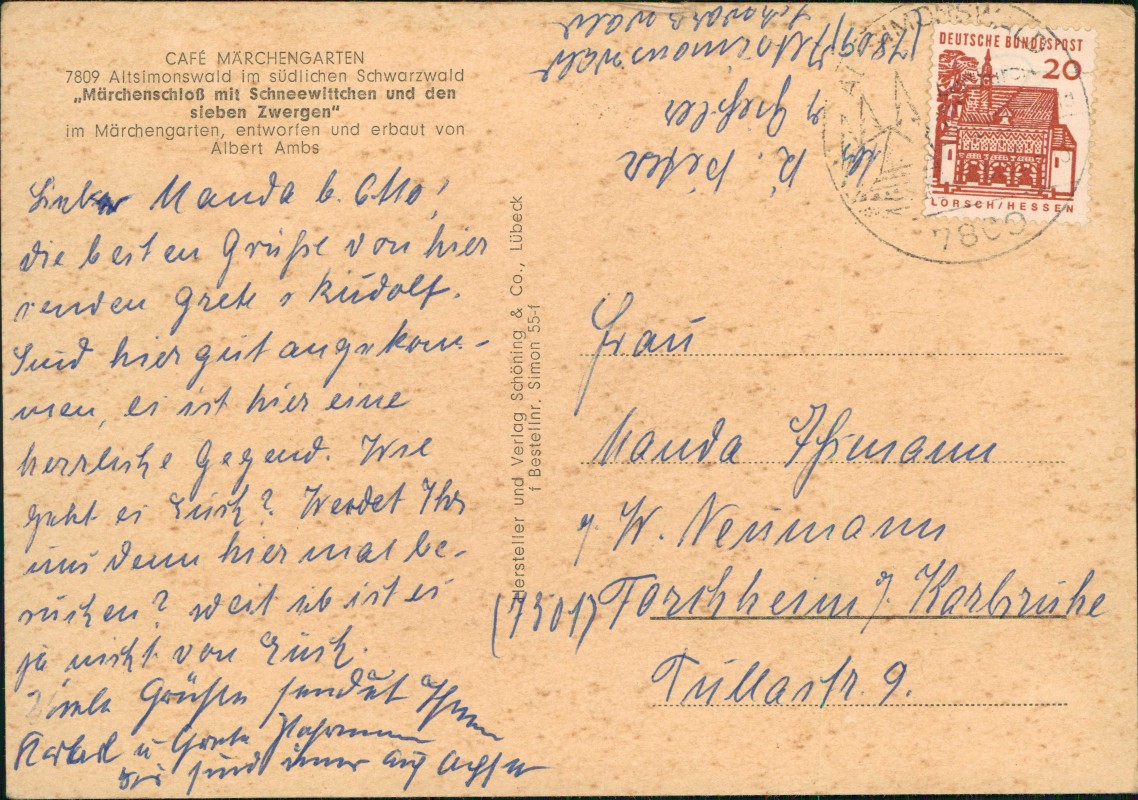 CAFÉ MÄRCHENGARTEN
7809 Altsimonswald im südlichen Schwarzwald
„Märchenschloß mit Schneewittchen und den
sieben Zwergen"
im Märchengarten, entworfen und erbaut von
Albert Ambs
Liebe Manda b. Otto!
die besten Grüße von hier
senden Grete u Rudolf.
Sind hier gut angekom-
men, es ist hier eine
herrliche Gegend. Wie
geht es Euch? Werdet Ihr
uns denn hier mal be-
suchen? weit ist es
ja nicht von Euch.
Viele Grüße sendet Ihnen
u Grete
Wir sind immer auf Achse
Hersteller und Verlag Schöning & Co., Lübeck
f Bestellnr. Simon 55-f
R. Peter
(7809) Altsimonswald
Schwarzwald
ALTSIMONSWALD
7809
DEUTSCHE BUNDESPOST
20
LORSCH/HESSEN
Frau
Manda Thimann
b/ W. Neumann
(7501) Forchheim b/ Karlsruhe
Tullastr. 9.